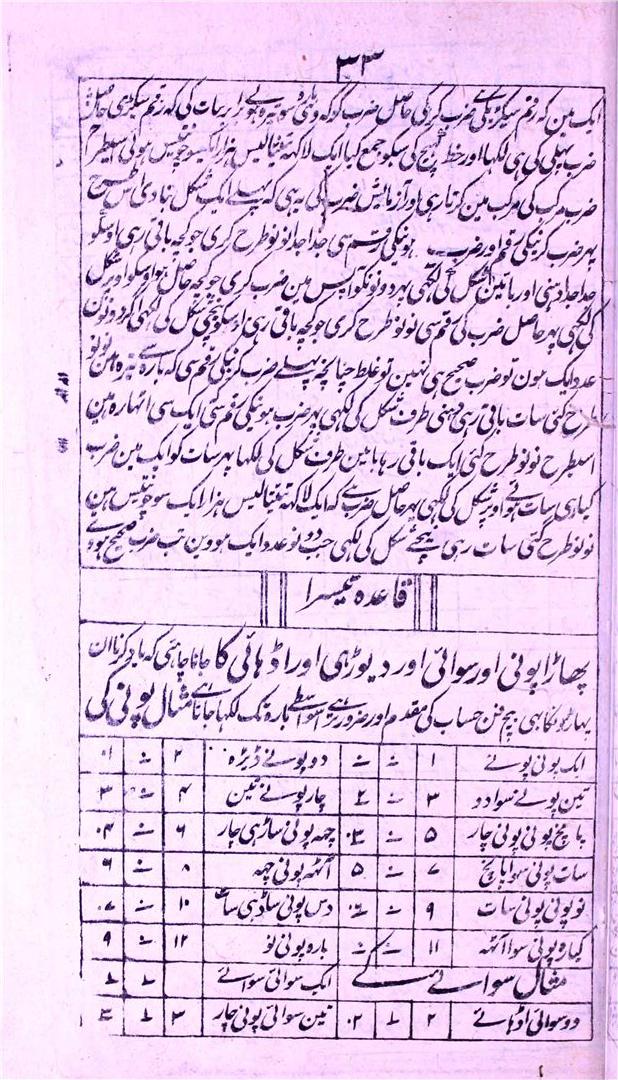 ٣٣
ایک مین کہ رقم سیکڑیکی ضرب کریکی حاصل ضرب کو کہ
ضرب پہلی کی ہی لکھا اور خط کہینچ کی سبکو جمع کیا ایک لاکہہ تینتالیس ہزار ایکسو چونتیس ہوئی اسیطرح
ضرب مرکب کی مرکب مین کرنا ہی اور آزمایش ضرب کی یہ ہی کہ پہلے ایک شکل بنا دی اس طرح
پہر ضرب کرنیکی رقم اور ضرب ہونیکی رقم سی جدا جدا نو نو طرح کری جو کچہہ باقی رہی اوسکو
جدا جدا دہنی اور بائین شکل کی لکہی پہر دونونکو آپس مین ضرب کری جو کچہہ حاصل ہو اوسکو اوپر شکل
کی لکہی پہر حاصل ضرب کی رقم سی نو نو طرح کری جو کچہہ باقی رہی اوسکو نیچی شکل کی لکہی اگر دونون
عدد ایک ہون تو ضرب صحیح ہی نہین تو غلط چنانچہ پہلے ضرب کرنیکی رقم سی کہ
طرح کئی سات باقی رہی دہنی طرف شکل کی لکہی پہر ضرب ہونیکی رقم سی کہ ایک سی اٹہارہ ہین
اسیطرح نو نو طرح کئی ایک باقی رہا بائین طرف شکل کی لکہا پہر سات کو ایک مین ضرب
کیا وہی سات ہوئے اوپر شکل کی لکہی پہر حاصل ضرب سے کہ ایک لاکہہ تینتالیس ہزار ایک سو چونتیس ہین
نو نو طرح کئی سات رہی نیچے شکل کی لکہی جب دونو عدد ایک ہووین تب ضرب صحیح ہووے
قاعدہ تیسرا
پہاڑا پونی اور سوائی اور دیوڑہی اور اڈہائی کا جانا چاہئی کہ یاد کرنا ان
پہاڑونکا ہی بیچ فن حساب کی مقدم اور ضرور ہے اسواسطے بارہ تک لکہا جاتا ہے مثال پونی کی
ایک پونی پونے ١ دو پونے ڈیڑہ ٢
تین پونے سوا دو ٣ چار پونے تین ٤
پانچ پونی پونی چار ٥ چہہ پونی ساڑہی چار ٦
سات پونی سوا پانچ ٧ آٹہہ پونی چہہ ٨
نو پونی پونی سات ٩ دس پونی ساڈہی سات ١٠
گیارہ پونی سوا آٹہہ ١١ بارہ پونی نو ١٢
مثال سوائے کے ایک سوائی سوائے
دو سوائی اڈہائے ٢ تین سوائی پونی چار ٣